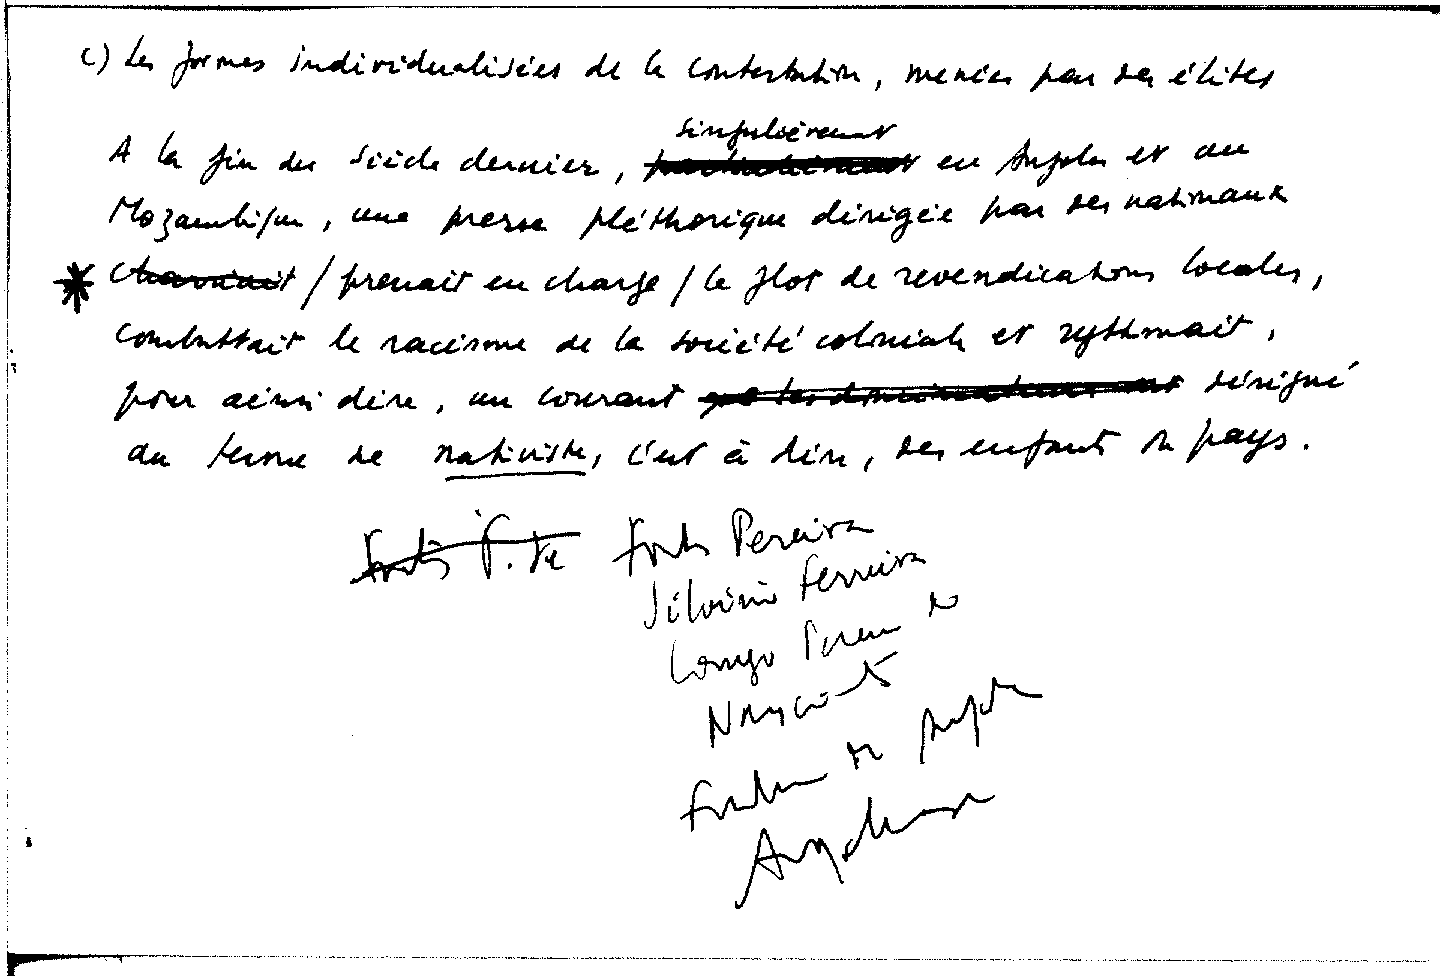 c) Les formes individualisées de la contestation, menées par des élites
singulièrement
A la fin du siècle dernier, particulièrement en Angola et au
Mozambique, une presse pléthorique dirigée par des nationaux
* charriait / prenait en charge / le flot de revendications locales,
combattait le racisme de la société coloniale et rythmait,
pour ainsi dire, un courant que les dominateurs ont désigné
du terme de nativiste, c'est à dire, des enfants du pays.
Fontes P. de Fontes Pereira
Silvério Ferreira
de
Angola